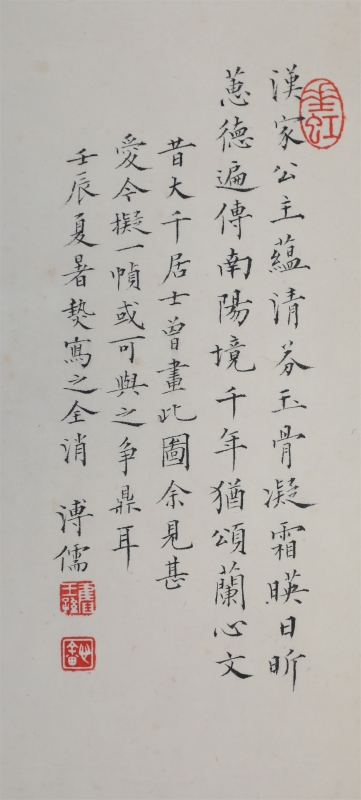 漢家公主蘊清芬玉骨凝霜暎日昕
蕙德遍傳南陽境千年猶頌蘭心文
昔大千居士曾畫此圖余見甚
愛今擬一幀或可與之争鼎耳
壬辰夏暑熱寫之全消
溥儒
舊王孫